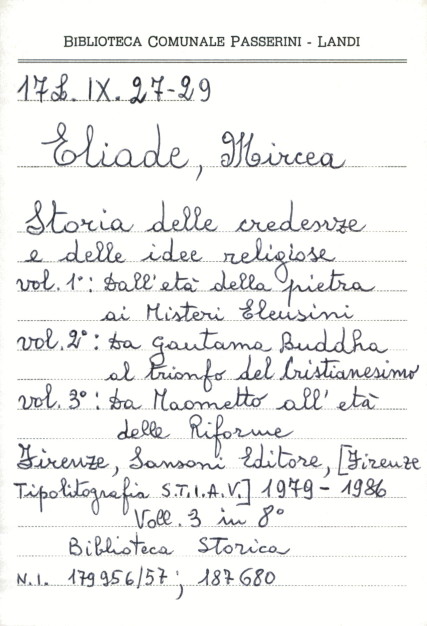 BIBLIOTECA COMUNALE PASSERINI - LANDI
17L. IX. 27-29
Eliade, Mircea
Storia delle credenze
e delle idee religiose
vol. 1°: Dall'età della pietra
ai Misteri Eleusini
vol. 2°: Da Gautama Buddha
al trionfo del Cristianesimo
vol. 3°: Da Maometto all'età
delle Riforme
Firenze, Sansoni Editore, [Firenze
Tipolitografia S.T.I.A.V.] 1979-1986
Voll. 3 in 8°
Biblioteca Storica
N.I. 179956/57; 187680